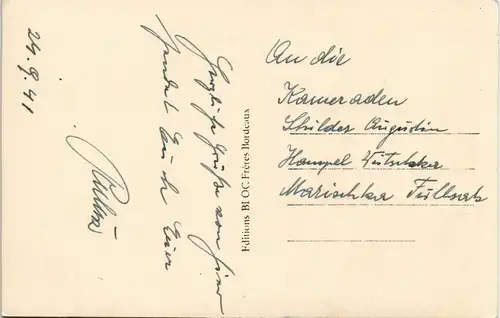 24.9.41
Herzliche Grüße von hier
sendet Euch Euer
Editions BLOC Frères Bordeaux
An die
Kameraden
Schilder Augustin
Hampel
Marischka